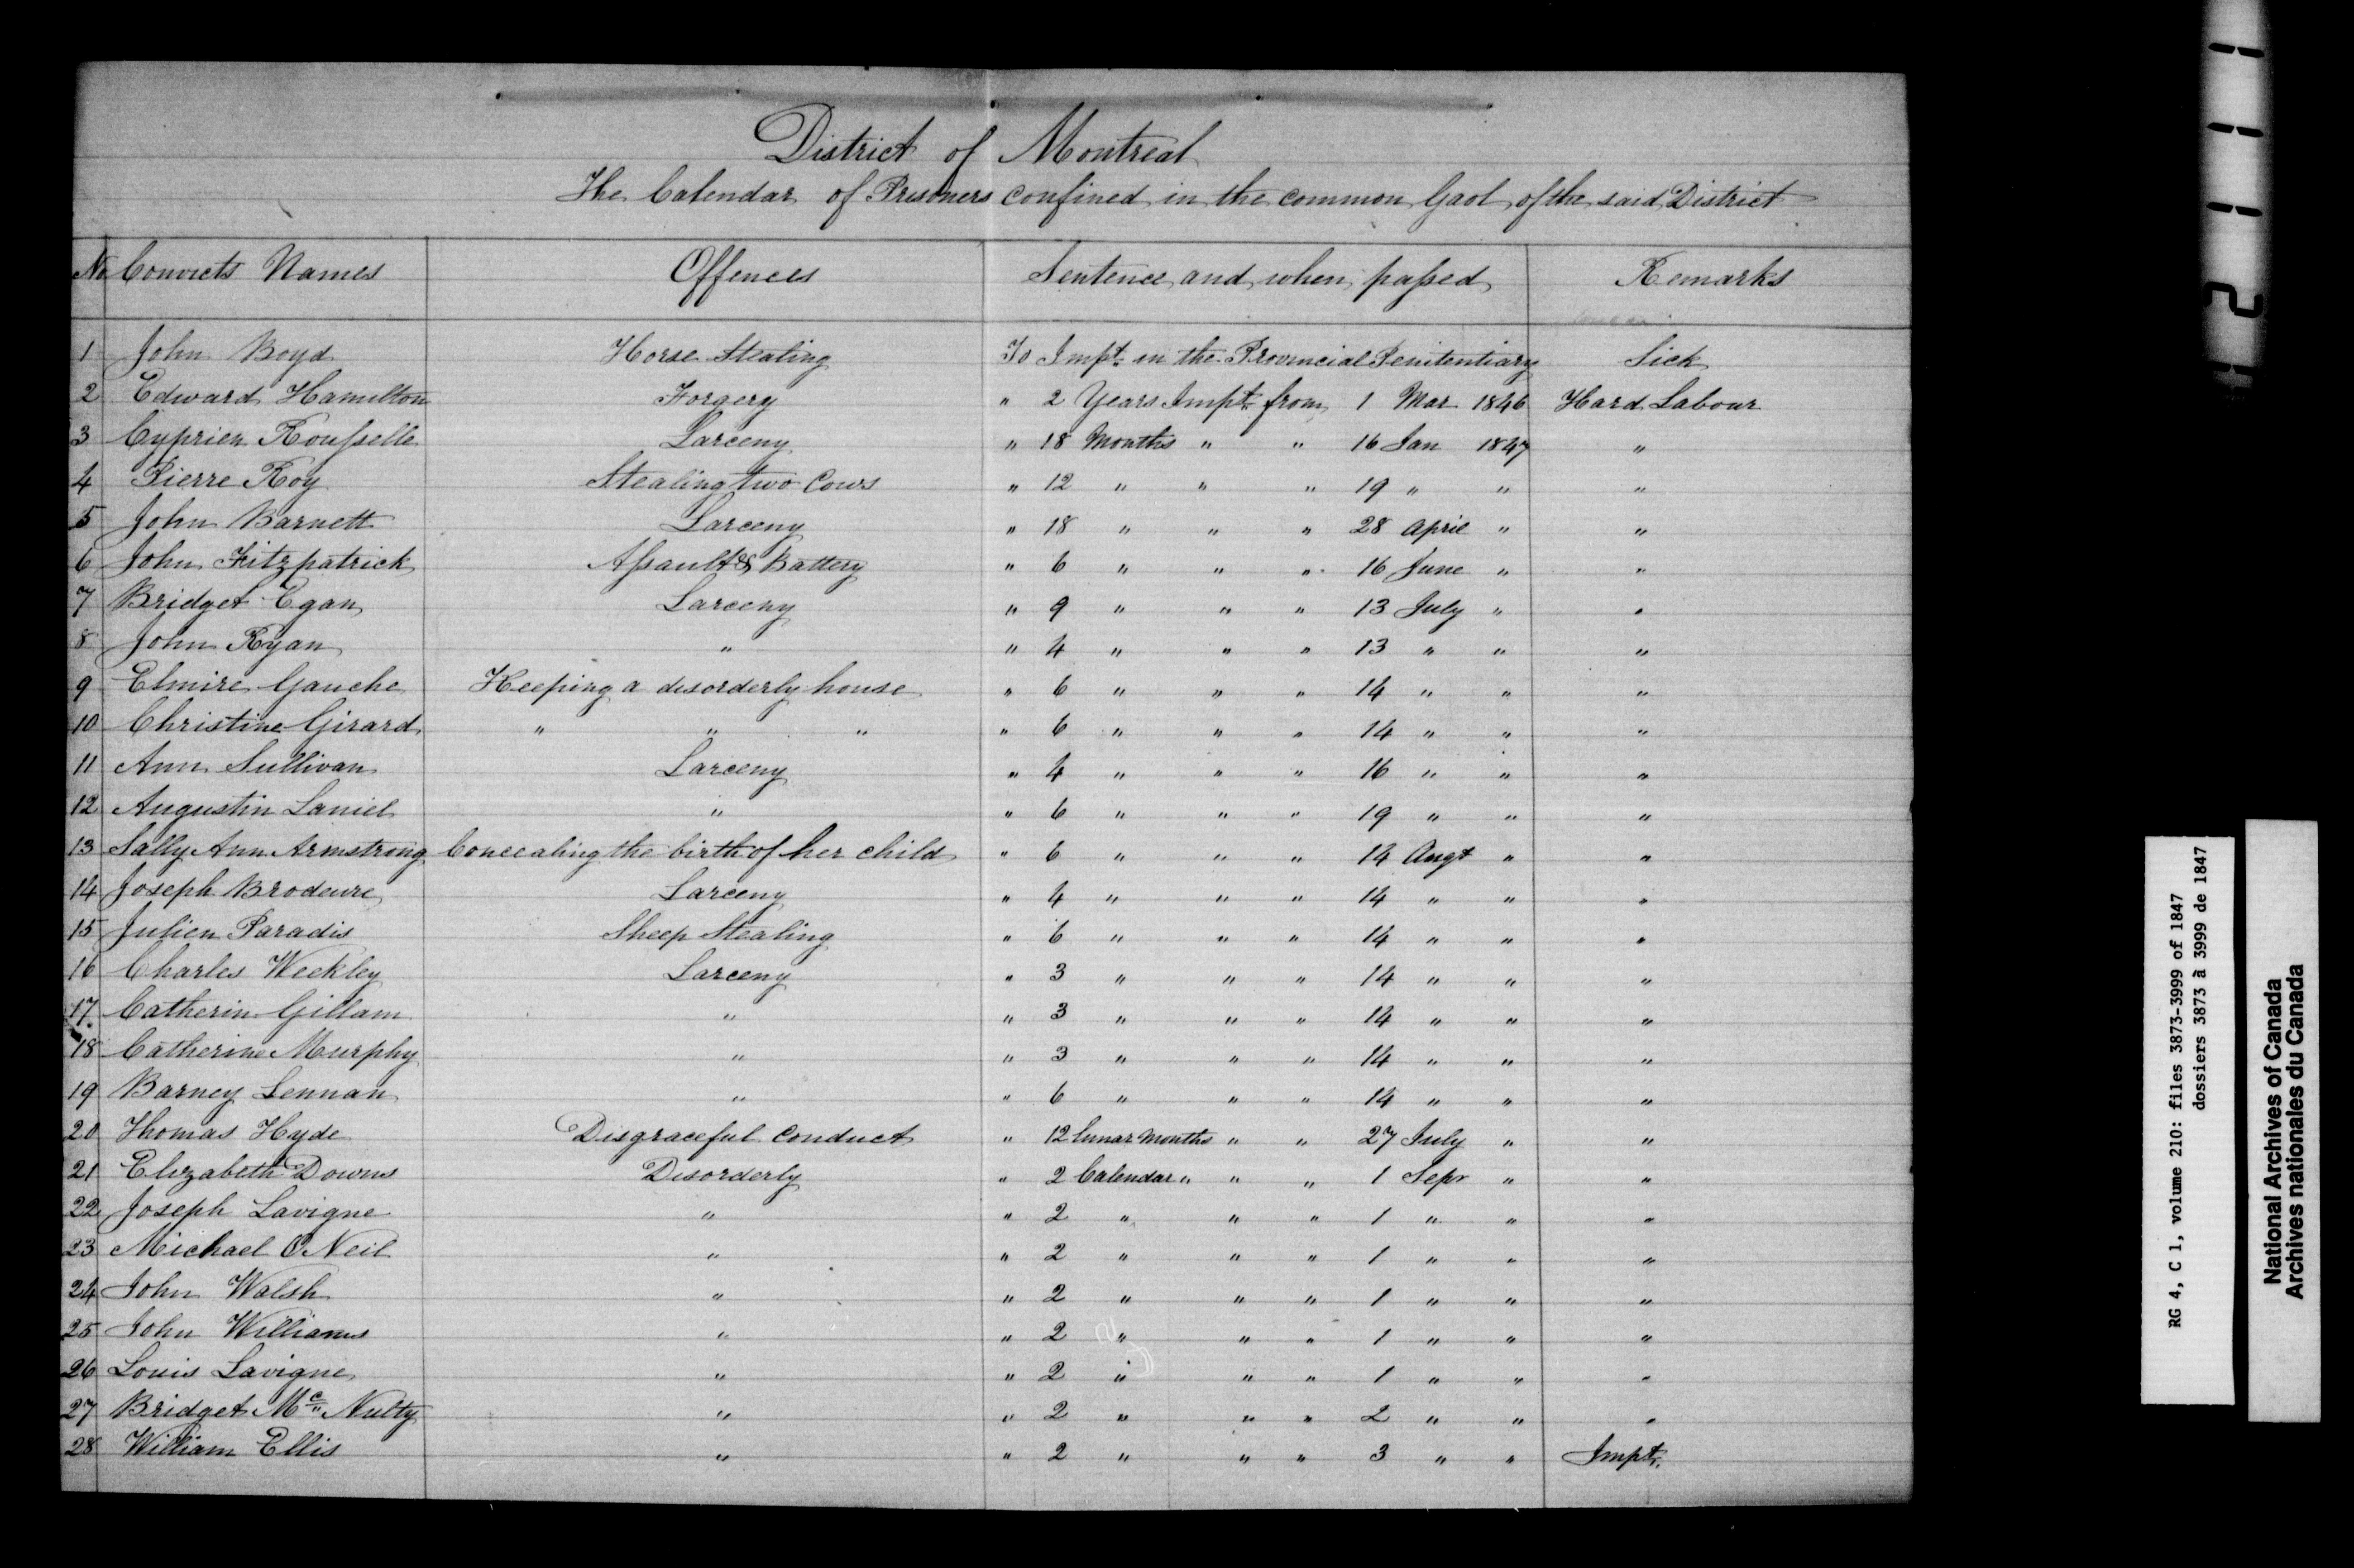 District of Montreal
The Calendar of Prisoners confined in the common Gaol of the said District
No Convicts Names Offences Sentence and when passed Remarks
1 John Boyd Horse Stealing To Impt. in the Provincial Penitentiary Sick
2 Edward Hamilton Forgery " 2 Years Impt. from 1 Mar 1846 Hard Labour
3 Cyprien Rousselle Larceny " 18 Months " " 16 Jan 1847 "
4 Pierre Roy Stealing two Cows " 12 " " " 19 " " "
5 John Barnett Larceny " 18 " " " 28 April " "
6 John Fitzpatrick Assault & Battery " 6 " " " 16 June " "
7 Bridget Egan Larceny " 9 " " " 13 July " "
8 John Ryan " " 4 " " " 13 " " "
9 Elmire Gauche Keeping a disorderly house " 6 " " " 14 " " "
10 Christine Girard " " " " 6 " " " 14 " " "
11 Ann Sullivan Larceny " 4 " " " 16 " " "
12 Augustin Laniel " " 6 " " " 19 " " "
13 Sally Ann Armstrong Concealing the birth of her child " 6 " " " 14 Augt " "
14 Joseph Brodeure Larceny " 4 " " " 14 " " "
15 Julien Paradis Sheep Stealing " 6 " " " 14 " " "
16 Charles Weekley Larceny " 3 " " " 14 " " "
17 Catherin Gillam " " 3 " " " 14 " " "
18 Catherine Murphy " " 3 " " " 14 " " "
19 Barney Lennan " " 6 " " " 14 " " "
20 Thomas Hyde Disgraceful Conduct " 12 lunar Months " " 27 July " "
21 Elizabeth Downs Disorderly " 2 Calendar " " " 1 Sepr " "
22 Joseph Lavigne " " 2 " " " 1 " " "
23 Michael O'Neil " " 2 " " " 1 " " "
24 John Walsh " " 2 " " " 1 " " "
25 John Williams " " 2 " " " 1 " " "
26 Louis Lavigne " " 2 " " " 1 " " "
27 Bridget Mc Nulty " " 2 " " " 2 " " "
28 William Ellis " " 2 " " " 3 " " Impt.
2
RG 4, C 1, volume 210: files 3873-3999 of 1847
dossiers 3873 à 3999 de 1847
National Archives of Canada
Archives nationales du Canada